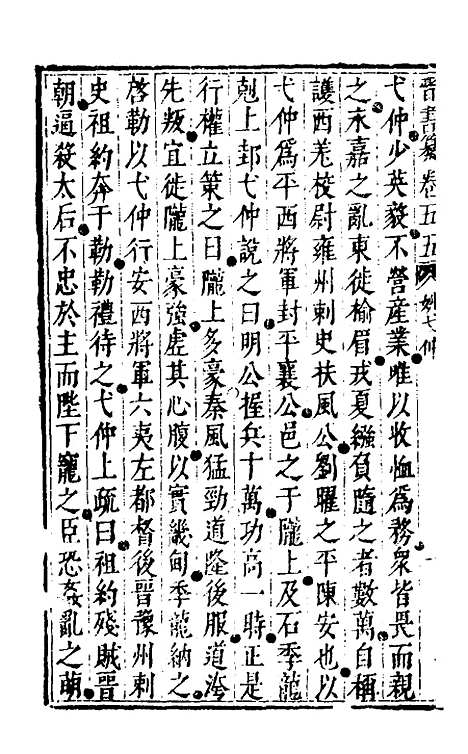 晉書纂卷五五 姚弋仲
弋仲少英毅不營産業唯以收恤爲務衆皆畏而親
之永嘉之亂東徙榆眉戎夏繈負隨之者數萬自稱
護西羌校尉雍州刺史扶風公劉曜之平陳安也以
弋仲爲平西將軍封平襄公邑之于隴上及石季龍
剋上邽弋仲說之曰明公握兵十萬功高一時正是
行權立策之日隴上多豪秦風猛勁道隆後服道洿
先叛宜徙隴上豪強虛其心腹以實畿甸季龍納之
啓勒以弋仲行安西將軍六夷左都督後晉豫州刺
史祖約奔于勒勒禮待之弋仲上疏曰祖約殘賊晉
朝逼殺太后不忠於主而陛下寵之臣恐姦亂之萌